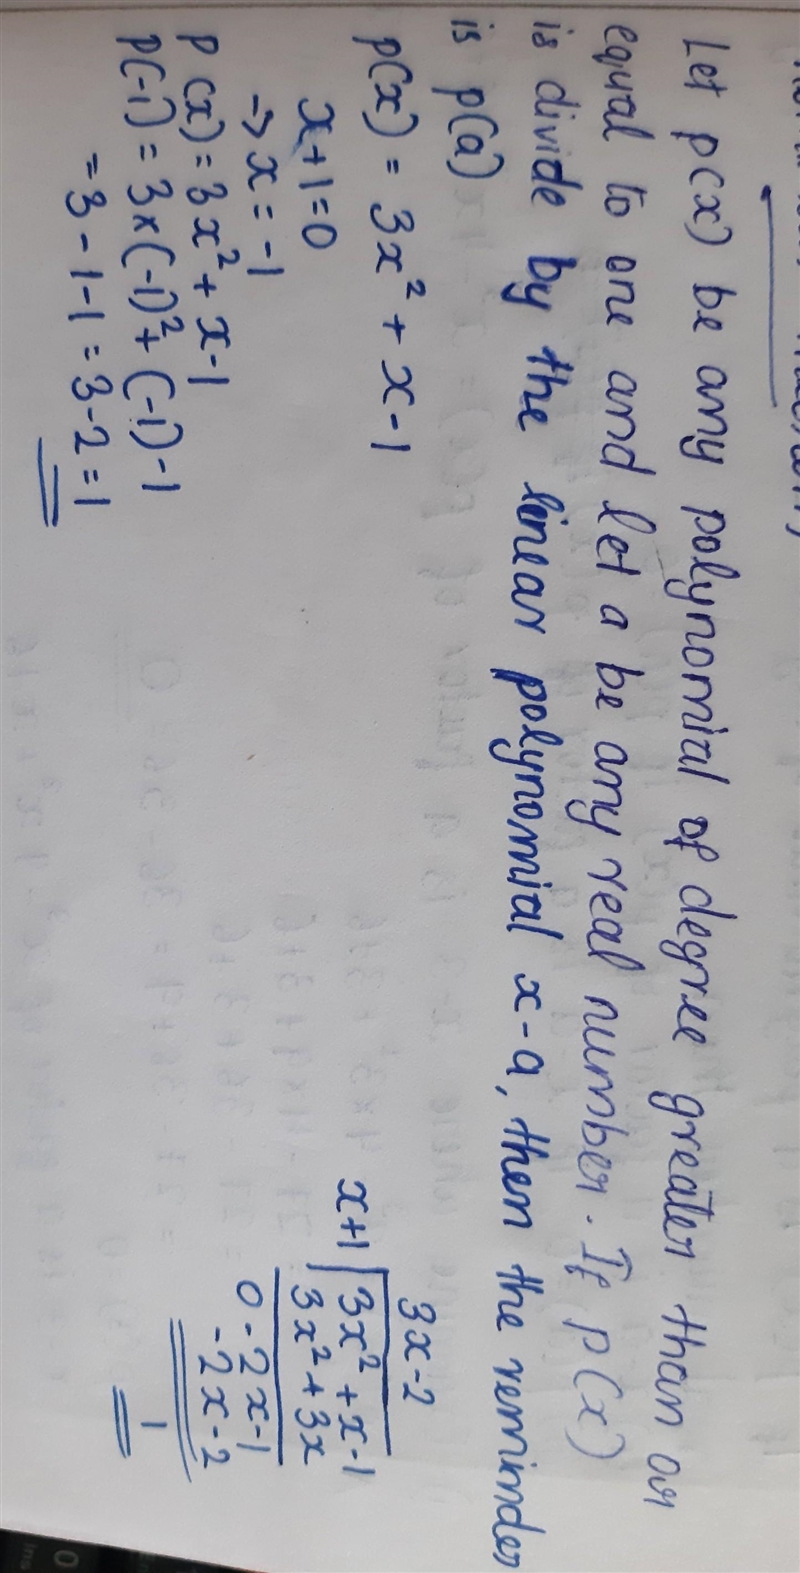 Let p(x) be any polynomial of degree greater than or
equal to one and let a be any real number. If p(x)
is divide by the linear polynomial x-a, then the reminder
is p(a)
p(x) = 3x² + x-1
x+1=0
→ x = -1
p(x) = 3x² + x-1
p(-1) = 3×(-1)² + (-1)-1
= 3-1-1 = 3-2 = 1
3x-2
x+1 | 3x² + x-1
3x² + 3x
0-2x-1
-2x-2
1